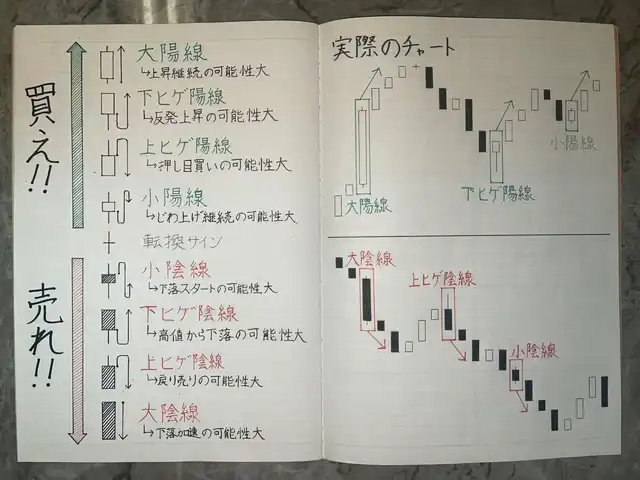 買え!!
大陽線
↳上昇継続の可能性大
下ヒゲ陽線
↳反発上昇の可能性大
上ヒゲ陽線
↳押し目買いの可能性大
小陽線
↳じわ上げ継続の可能性大
転換サイン
売れ!!
小陰線
↳下落スタートの可能性大
下ヒゲ陰線
↳高値から下落の可能性大
上ヒゲ陰線
↳戻り売りの可能性大
大陰線
↳下落加速の可能性大
実際のチャート
大陽線
下ヒゲ陽線
小陽線
大陰線
上ヒゲ陰線
小陰線